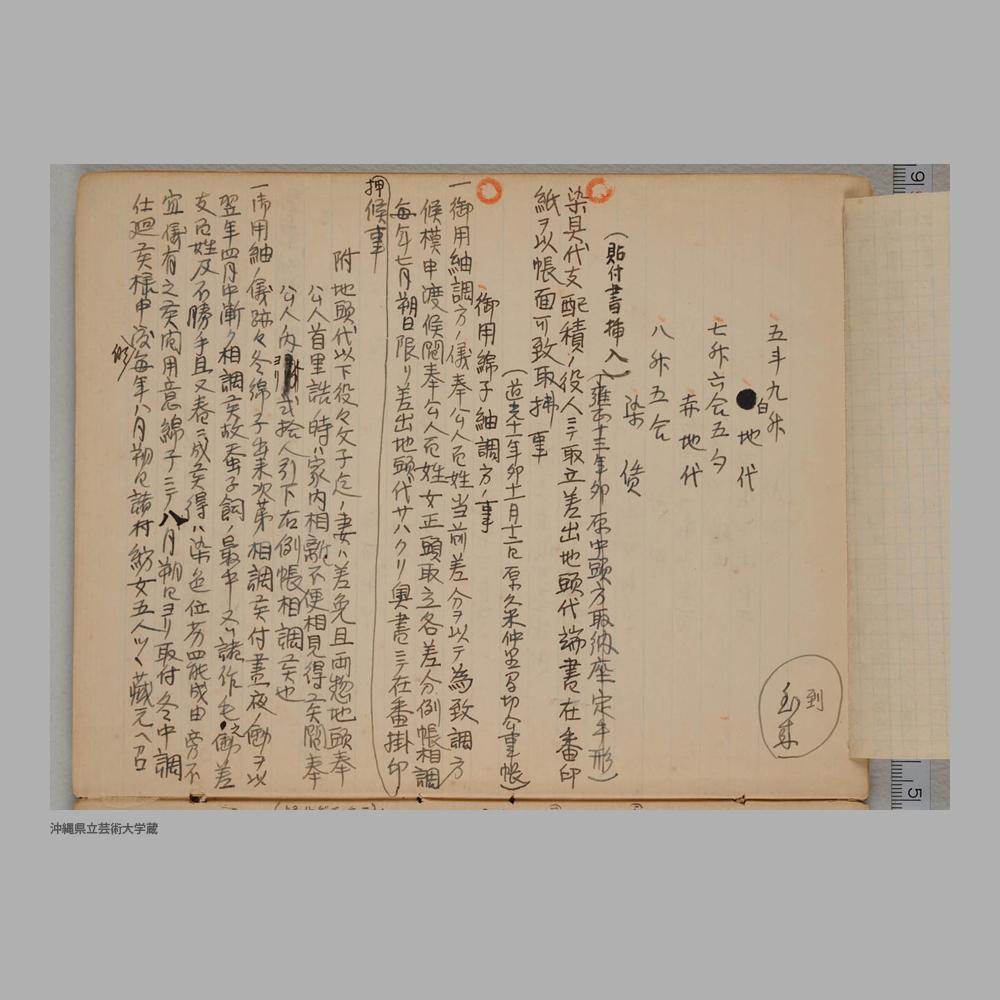 五斗九升
白地代
七升六合五夕
赤地代
八升五合
染賃
(貼付書挿入)(雍正十三年卯 原中頭方取納座定手形)
染具代支配積ノ役人ニテ取立差出地頭代端書在番印
紙ヲ以帳面可致取払事
(道光十一年卯十一月十二日原久米仲里間切公事帳)
御用綿子紬調方ノ事
一御用紬調方ノ儀奉公人百姓当前差分ヲ以テ為致調方
候模申渡候間奉公人百姓女正頭取立各差分例帳相調
毎年七月朔日限リ差出地頭代サハクリ奥書ニテ在番掛印
押候事
附地頭代以下役々父子迄ノ妻ハ差免且両惣地頭奉
公人首里詰ノ時ハ家内相離不便相見得候間奉
公人内ヨリ弐拾人引下右例帳相調候也
一御用紬ノ儀跡々冬綿子出来次第相調候付昼夜ノ働ヲ以
翌年四月中漸ク相調候故蚕子飼ノ最中又ハ諸作毛之働差
支百姓及不勝手且又春ニ成候得ハ染色位劣罷成由旁不
宜儀有之候間用意綿子ニテ八月朔日ヨリ取付冬中調
仕廻候様申渡毎年八月朔日諸村紡女五人ツヽ蔵元ヘ召
到来